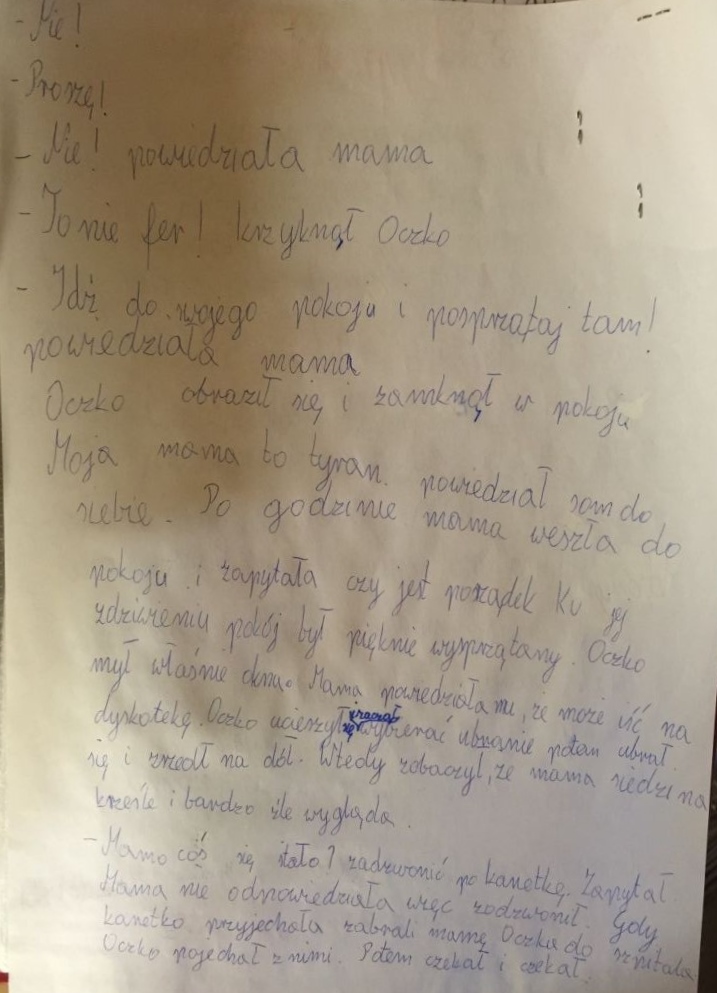 - Nie!
- Proszę!
- Nie! powiedziała mama
- To nie fer! krzyknął Oczko
- Idź do swojego pokoju i posprzątaj tam!
powiedziała mama
Oczko obraził się i zamknął w pokoju
Moja mama to tyran. powiedział sam do
siebie. Po godzinie mama weszła do
pokoju i zapytała czy jest porządek Ku jej
zdziwieniu pokój był pięknie wysprzątany. Oczko
mył właśnie okna. Mama powiedziała mu, że może iść na
dyskotekę. Oczko ucieszył się zaczął wybierać ubranie potem ubrał
się i zszedł na dół. Wtedy zobaczył, że mama siedzi na
krześle i bardzo źle wygląda.
- Mamo coś się stało? zadzwonić po kanetkę. Zapytał.
Mama nie odpowiedziała więc zadzwonił. Gdy
kanetko przyjechała zabrali mamę Oczka do szpitala
Oczko pojechał z nimi. Potem czekał i czekał.